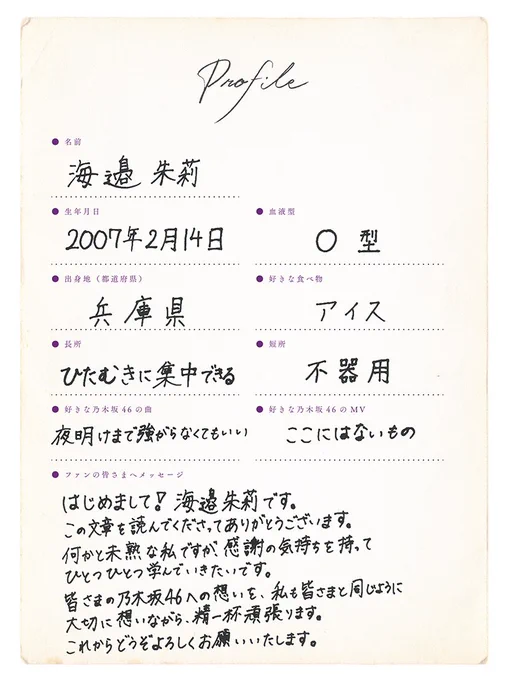 Profile
名前
海邉 朱莉
生年月日
2007年2月14日
血液型
O 型
出身地（都道府県）
兵庫県
好きな食べ物
アイス
長所
ひたむきに集中できる
短所
不器用
好きな乃木坂46の曲
夜明けまで強がらなくてもいい
好きな乃木坂46のMV
ここにはないもの
ファンの皆さまへメッセージ
はじめまして！ 海邉朱莉です。
この文章を読んでくださってありがとうございます。
何かと未熟な私ですが、感謝の気持ちを持って
ひとつひとつ学んでいきたいです。
皆さまの乃木坂46への想いを、私も皆さまと同じように
大切に想いながら、精一杯頑張ります。
これからどうぞよろしくお願いいたします。